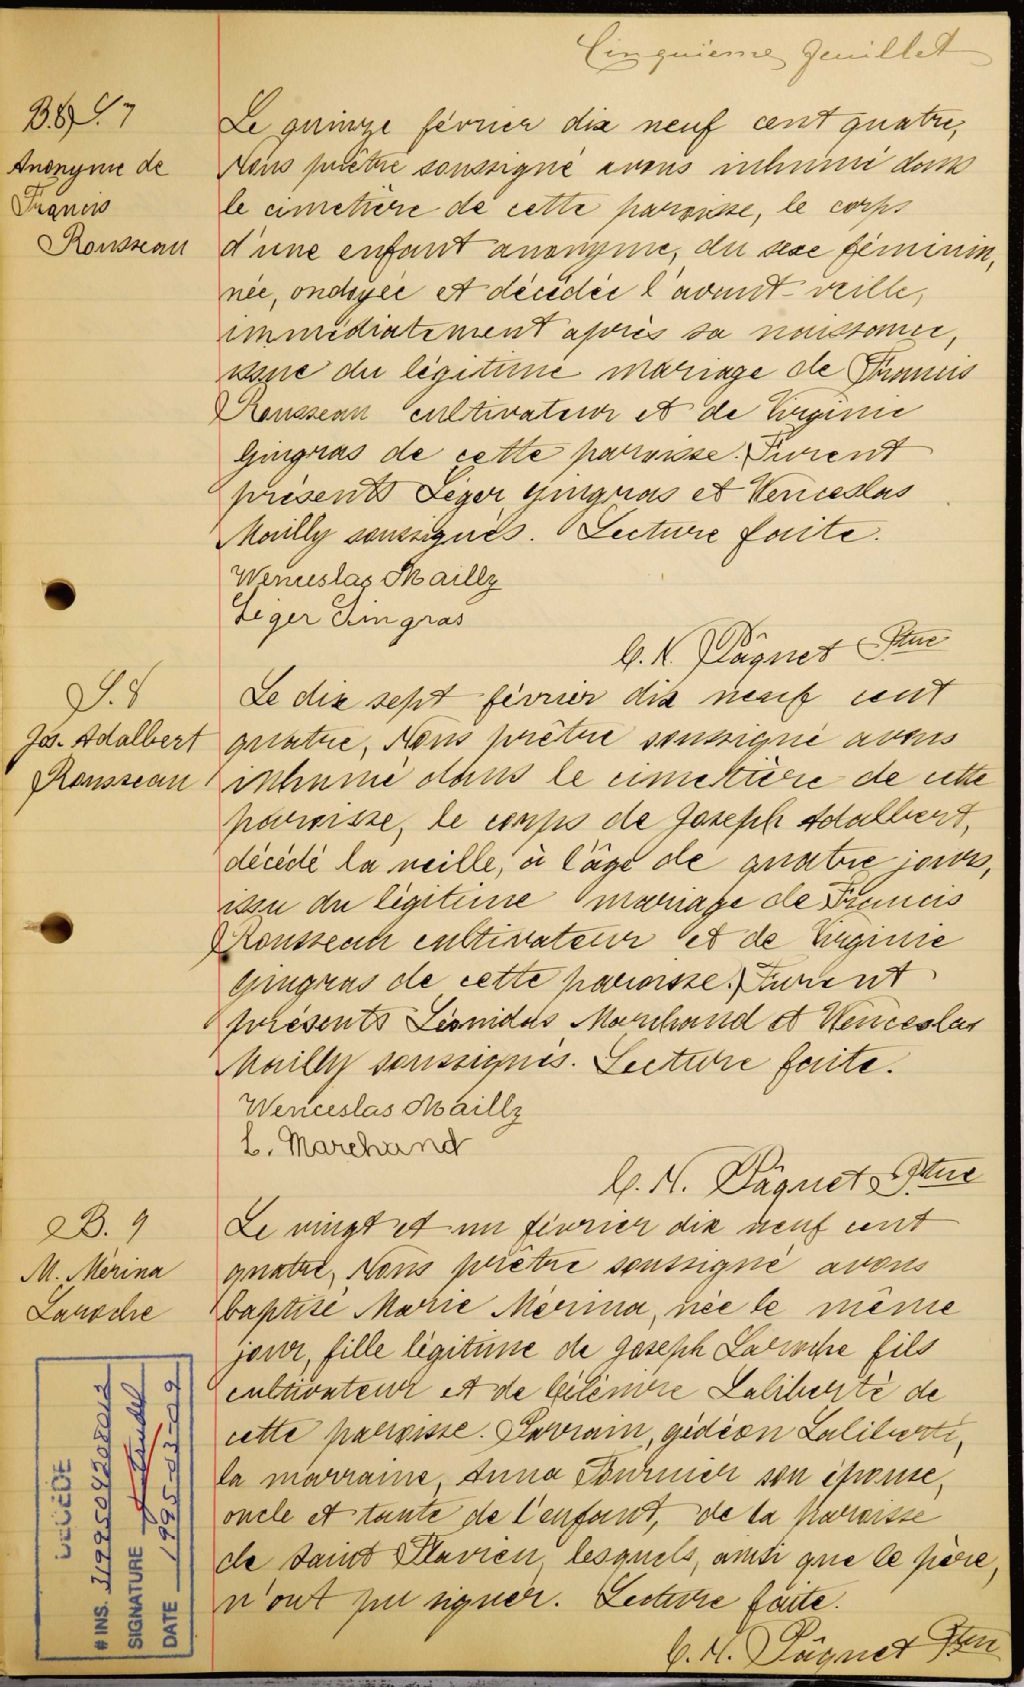 Cinquième feuillet
B.8, S. 7
Anonyme de
Francis
Rousseau
Le quinze février dix neuf cent quatre,
Nous prêtre soussigné avons inhumé dans
le cimetière de cette paroisse, le corps
d'une enfant anonyme, du sexe féminin,
née, ondoyée et décédée l'avant-veille,
immédiatement après sa naissance,
issue du légitime mariage de Francis
Rousseau cultivateur et de Virginie
Gingras de cette paroisse. Furent
présents Léger Gingras et Wenceslas
Mailly soussignés. Lecture faite.
Wenceslas Mailly
Léger Gingras
C. N. Pâquet Ptre
S. 8
Jos. Adalbert
Rousseau
Le dix sept février dix neuf cent
quatre, Nous prêtre soussigné avons
inhumé dans le cimetière de cette
paroisse, le corps de Joseph Adalbert,
décédé la veille, à l'âge de quatre jours,
issu du légitime mariage de Francis
Rousseau cultivateur et de Virginie
Gingras de cette paroisse. Furent
présents Léonidas Marchand et Wenceslas
Mailly soussignés. Lecture faite.
Wenceslas Mailly
L. Marchand
C. N. Pâquet Ptre
B. 9
M. Mérina
Laroche
Le vingt et un février dix neuf cent
quatre, Nous prêtre soussigné avons
baptisé Marie Mérina, née le même
jour, fille légitime de Joseph Laroche fils
cultivateur et de Célénire Laliberté de
cette paroisse. Parrain, Gédéon Laliberté,
la marraine, Anna Fournier son épouse,
oncle et tante de l'enfant, de la paroisse
de Saint Flavien, lesquels, ainsi que le père,
n'ont pu signer. Lecture faite.
C. N. Pâquet Ptre
DÉCÉDÉ
# INS. 3199504208012
SIGNATURE Trudel
DATE 1995-03-09